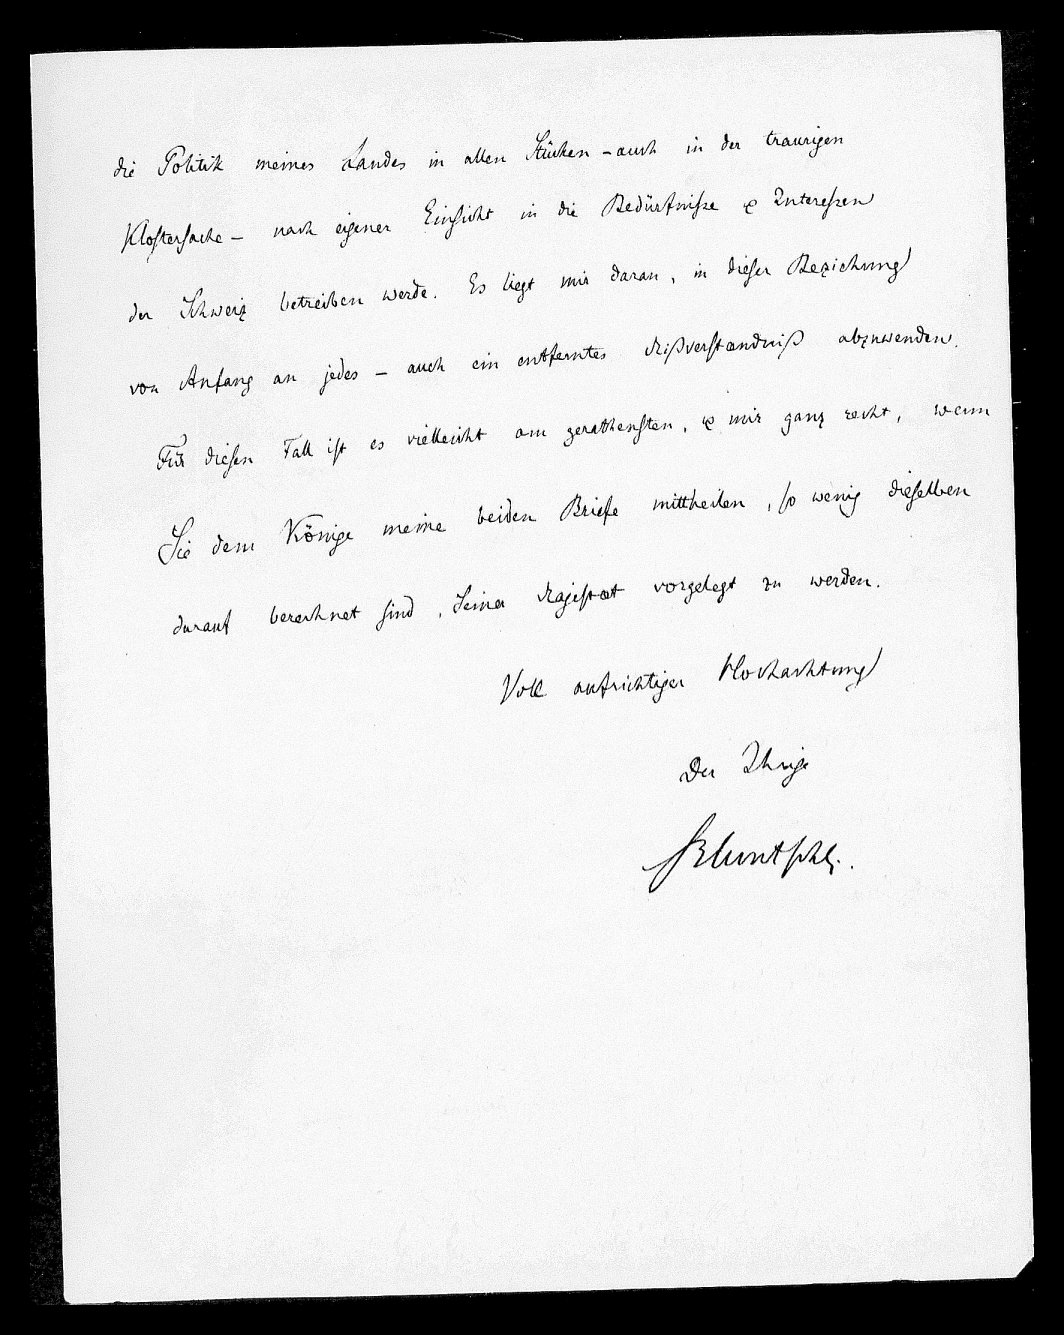 die Politik meines Landes in allen Stücken – auch in der traurigen
Klostersache – nach eigener Einsicht in die Bedürfniße & Intereßen
der Schweiz betreiben werde. Es liegt mir daran, in dieser Beziehung
von Anfang an jedes – auch ein entferntes Mißverständniß abzuwenden.
Für diesen Fall ist es vielleicht am gerathensten, & mir ganz recht, wenn
Sie dem Könige meine beiden Briefe mittheilen, so wenig dieselben
darauf berechnet sind, Seiner Majestæt vorgelegt zu werden.
Voll aufrichtiger Hochachtung
Der Ihrige
Bluntschli.